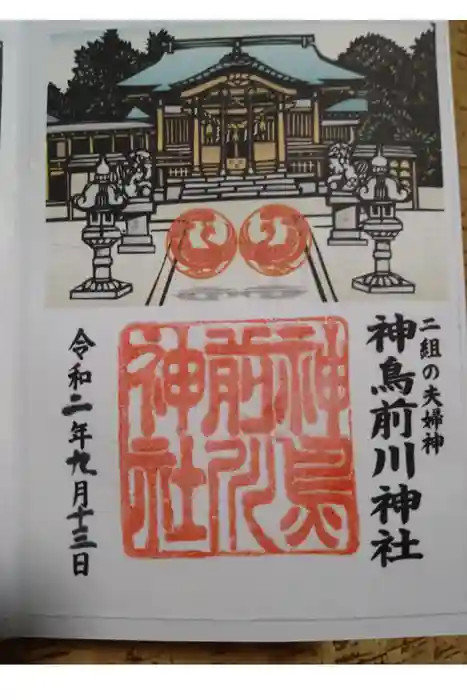 二組の夫婦神
神鳥前川神社
神鳥
前川
神社
令和二年九月十三日